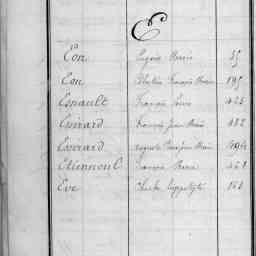 E
Eon Eugène Marie 35
Eon Célestin François Marie 195
Esnault François Louis 425
Evrard François Jean Marie 432
Evrard Auguste Jean Marie
Etienne François Marie 451
Eve Charles Hippolyte